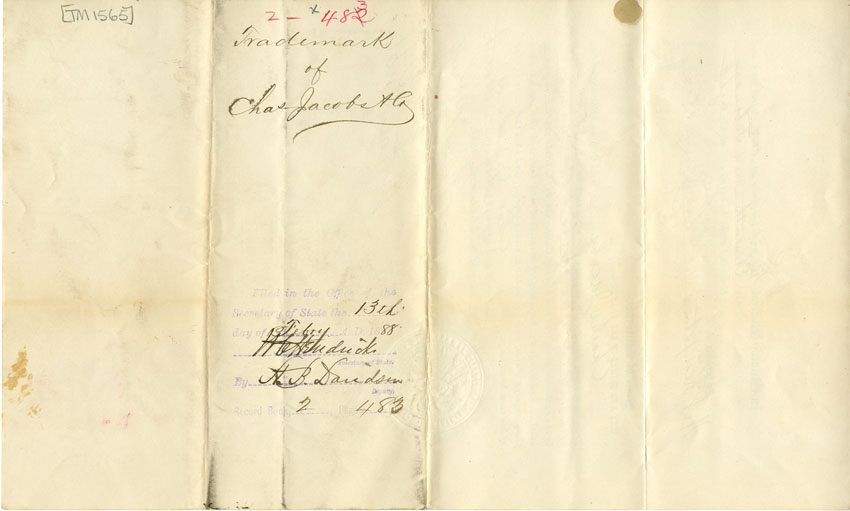 [TM 1565]
2 - x 483
Trademark
of
Chas Jacobs & Co
Filed in the Office of the
Secretary of State the 13th
day of Feby A.D. 1888
W C Hendricks
Secretary of State
By A. B. Davidson
Deputy
Record Book 2, Page 483